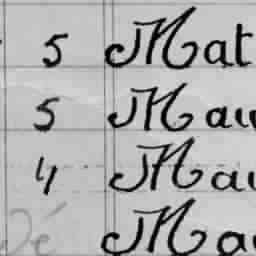 5 Mat
5 Mau
4 Mau
Dé Ma